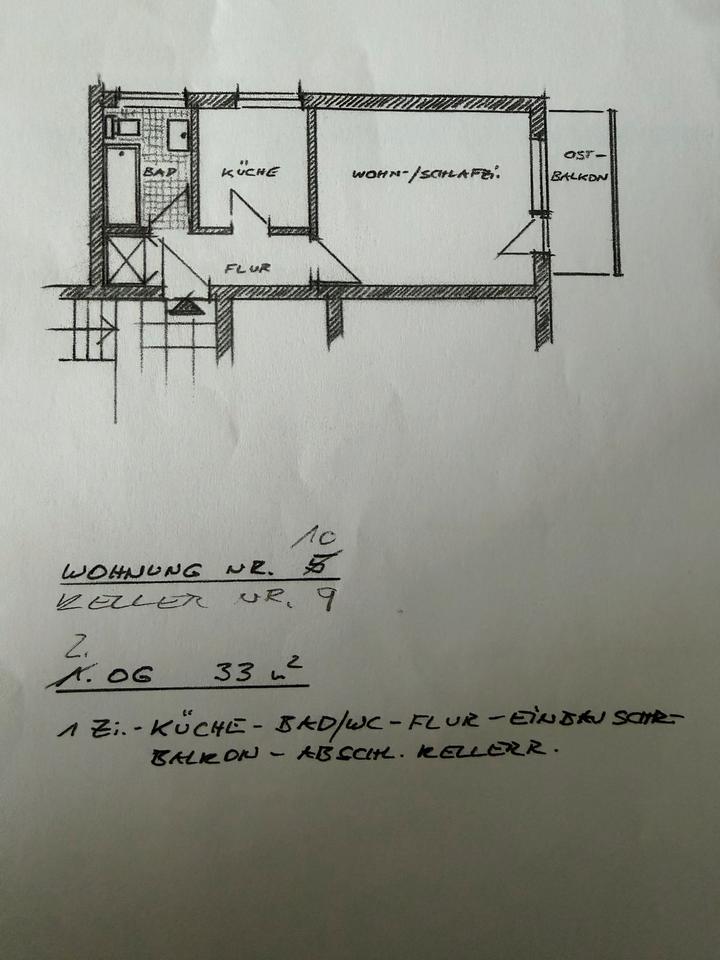 BAD
KÜCHE
WOHN-/SCHLAFZi.
OST-
BALKON
FLUR
10
WOHNUNG NR. 5
KELLER NR. 9
2.
1. OG 33 m²
1 Zi.-KÜCHE-BAD/WC-FLUR-EINBAUSCHR-
BALKON - ABSCHL. KELLERR.